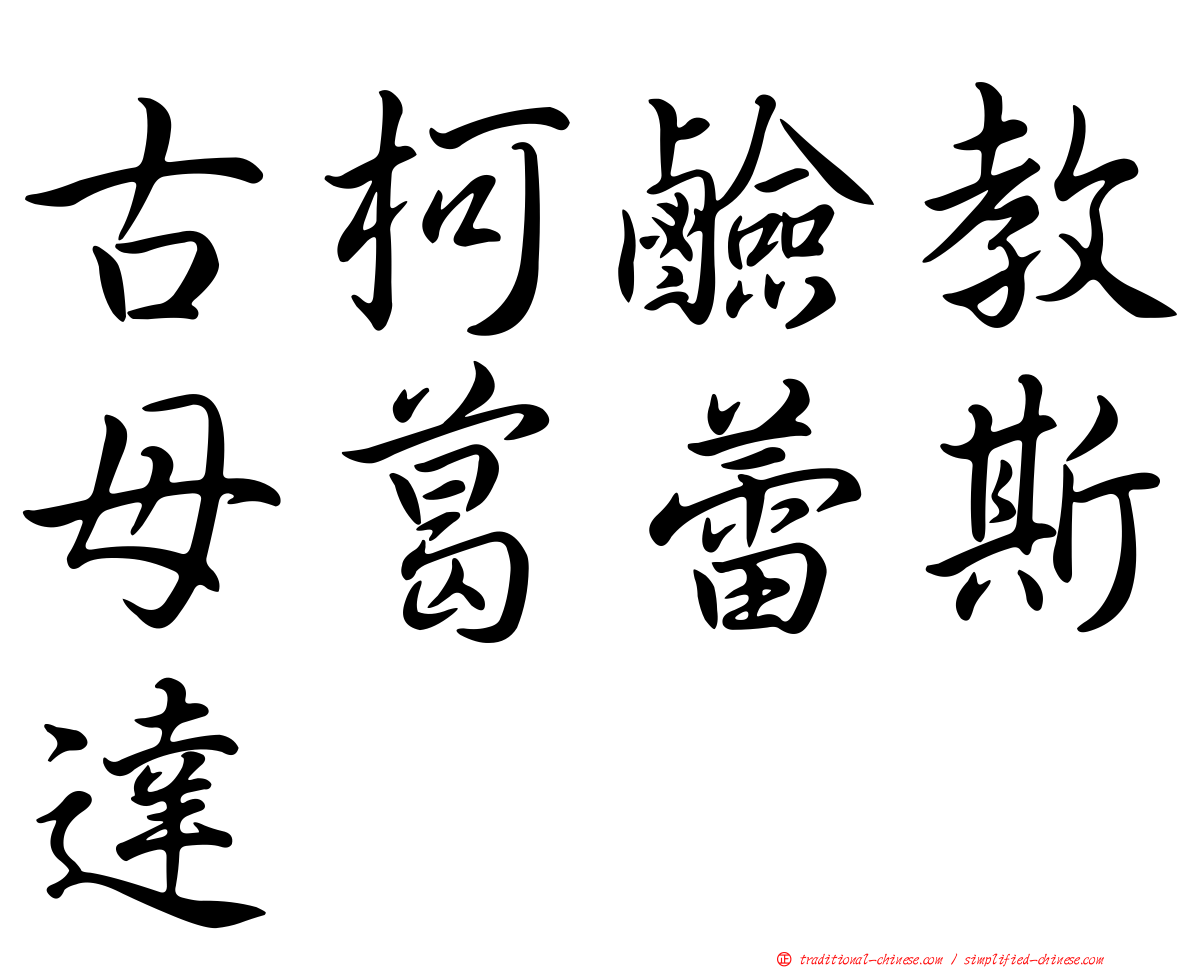 古柯鹼教
母葛蕾斯
達
㊣ traditional-chinese.com / simplified-chinese.com